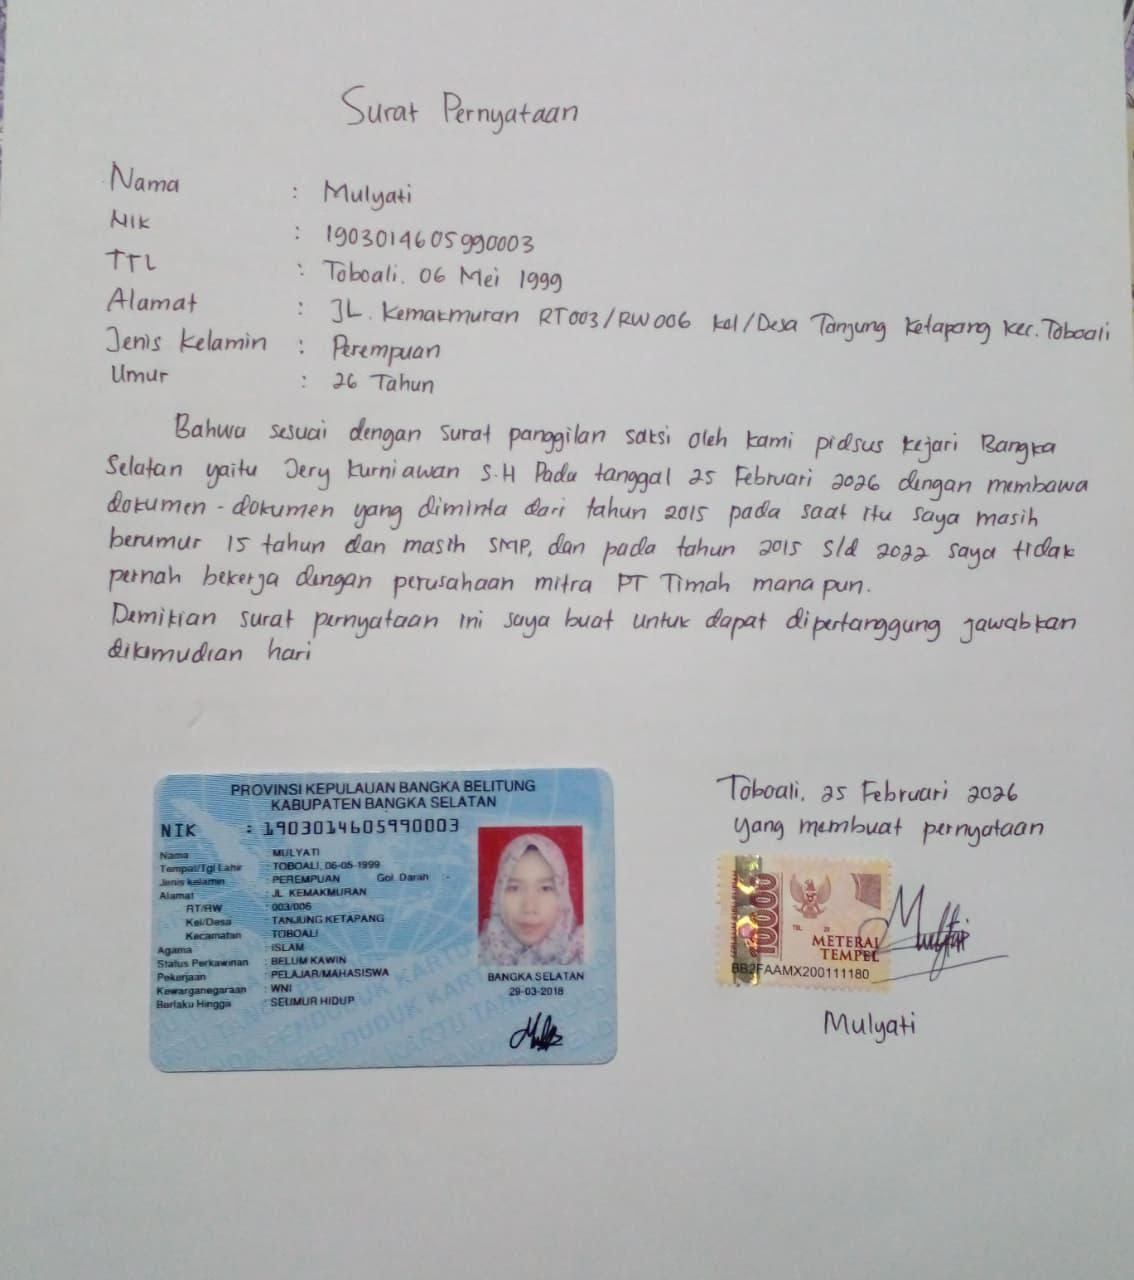 Surat Pernyataan
Nama : Mulyati
NIK : 1903014605990003
TTL : Toboali, 06 Mei 1999
Alamat : JL. Kemakmuran RT003/RW006 Kel/Desa Tanjung Ketapang Kec. Toboali
Jenis Kelamin : Perempuan
Umur : 26 Tahun
Bahwa sesuai dengan surat panggilan saksi oleh kami pidsus Kejari Bangka
Selatan yaitu Jery Kurniawan S.H Pada tanggal 25 Februari 2026 dengan membawa
dokumen - dokumen yang diminta dari tahun 2015 pada saat itu saya masih
berumur 15 tahun dan masih SMP, dan pada tahun 2015 s/d 2022 saya tidak
pernah bekerja dengan perusahaan mitra PT Timah mana pun.
Demikian surat pernyataan ini saya buat untuk dapat dipertanggung jawabkan
dikemudian hari
PROVINSI KEPULAUAN BANGKA BELITUNG
KABUPATEN BANGKA SELATAN
NIK : 1903014605990003
Nama : MULYATI
Tempat/Tgl Lahir : TOBOALI, 06-05-1999
Jenis kelamin : PEREMPUAN Gol. Darah : -
Alamat : JL. KEMAKMURAN
RT/RW : 003/006
Kel/Desa : TANJUNG KETAPANG
Kecamatan : TOBOALI
Agama : ISLAM
Status Perkawinan : BELUM KAWIN
Pekerjaan : PELAJAR/MAHASISWA
Kewarganegaraan : WNI
Berlaku Hingga : SEUMUR HIDUP
BANGKA SELATAN
29-03-2018
Toboali, 25 Februari 2026
yang membuat pernyataan
10000
METERAI
TEMPEL
BB2FAAMX200111180
Mulyati